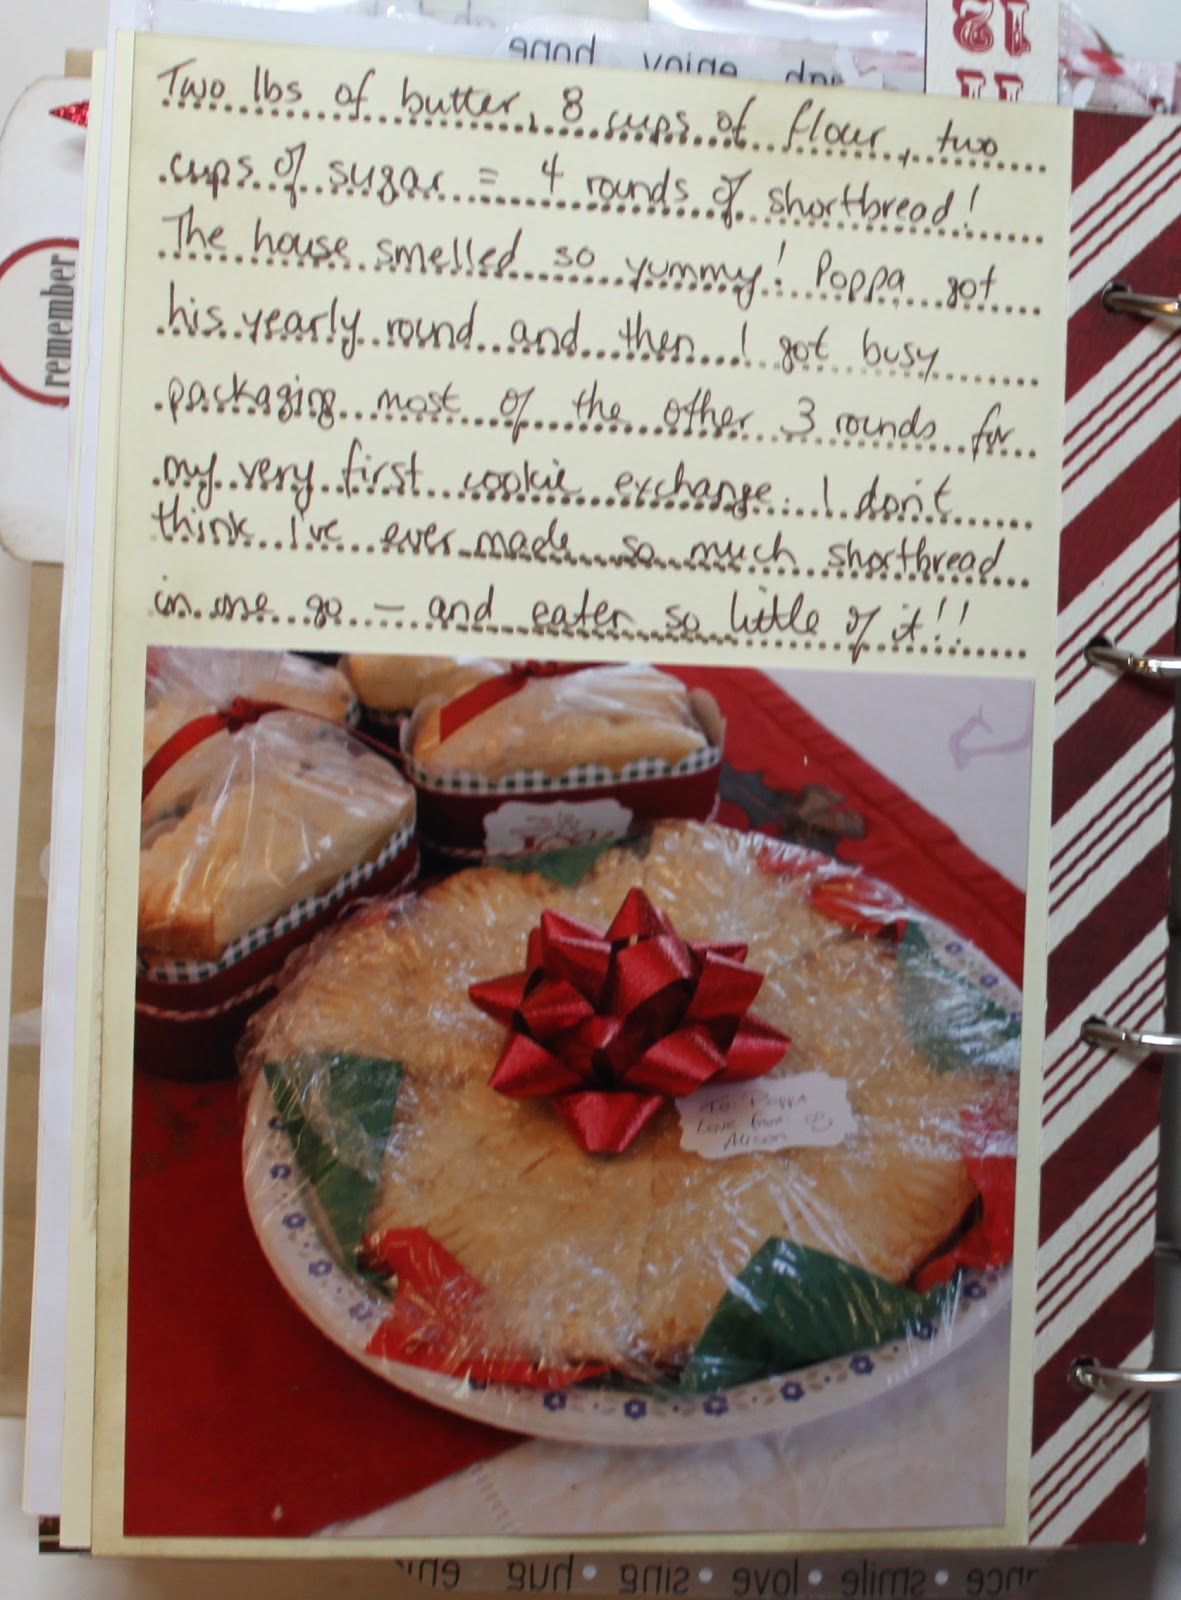 Two lbs of butter, 8 cups of flour, two
cups of sugar = 4 rounds of shortbread!
The house smelled so yummy! Poppa got
his yearly round and then I got busy
packaging most of the other 3 rounds for
my very first cookie exchange. I don't
think I've ever made so much shortbread
in one go – and eaten so little of it!!
remember
12
11
To: Poppa
Love from
Alison
ance • smile • love • sing • hug •